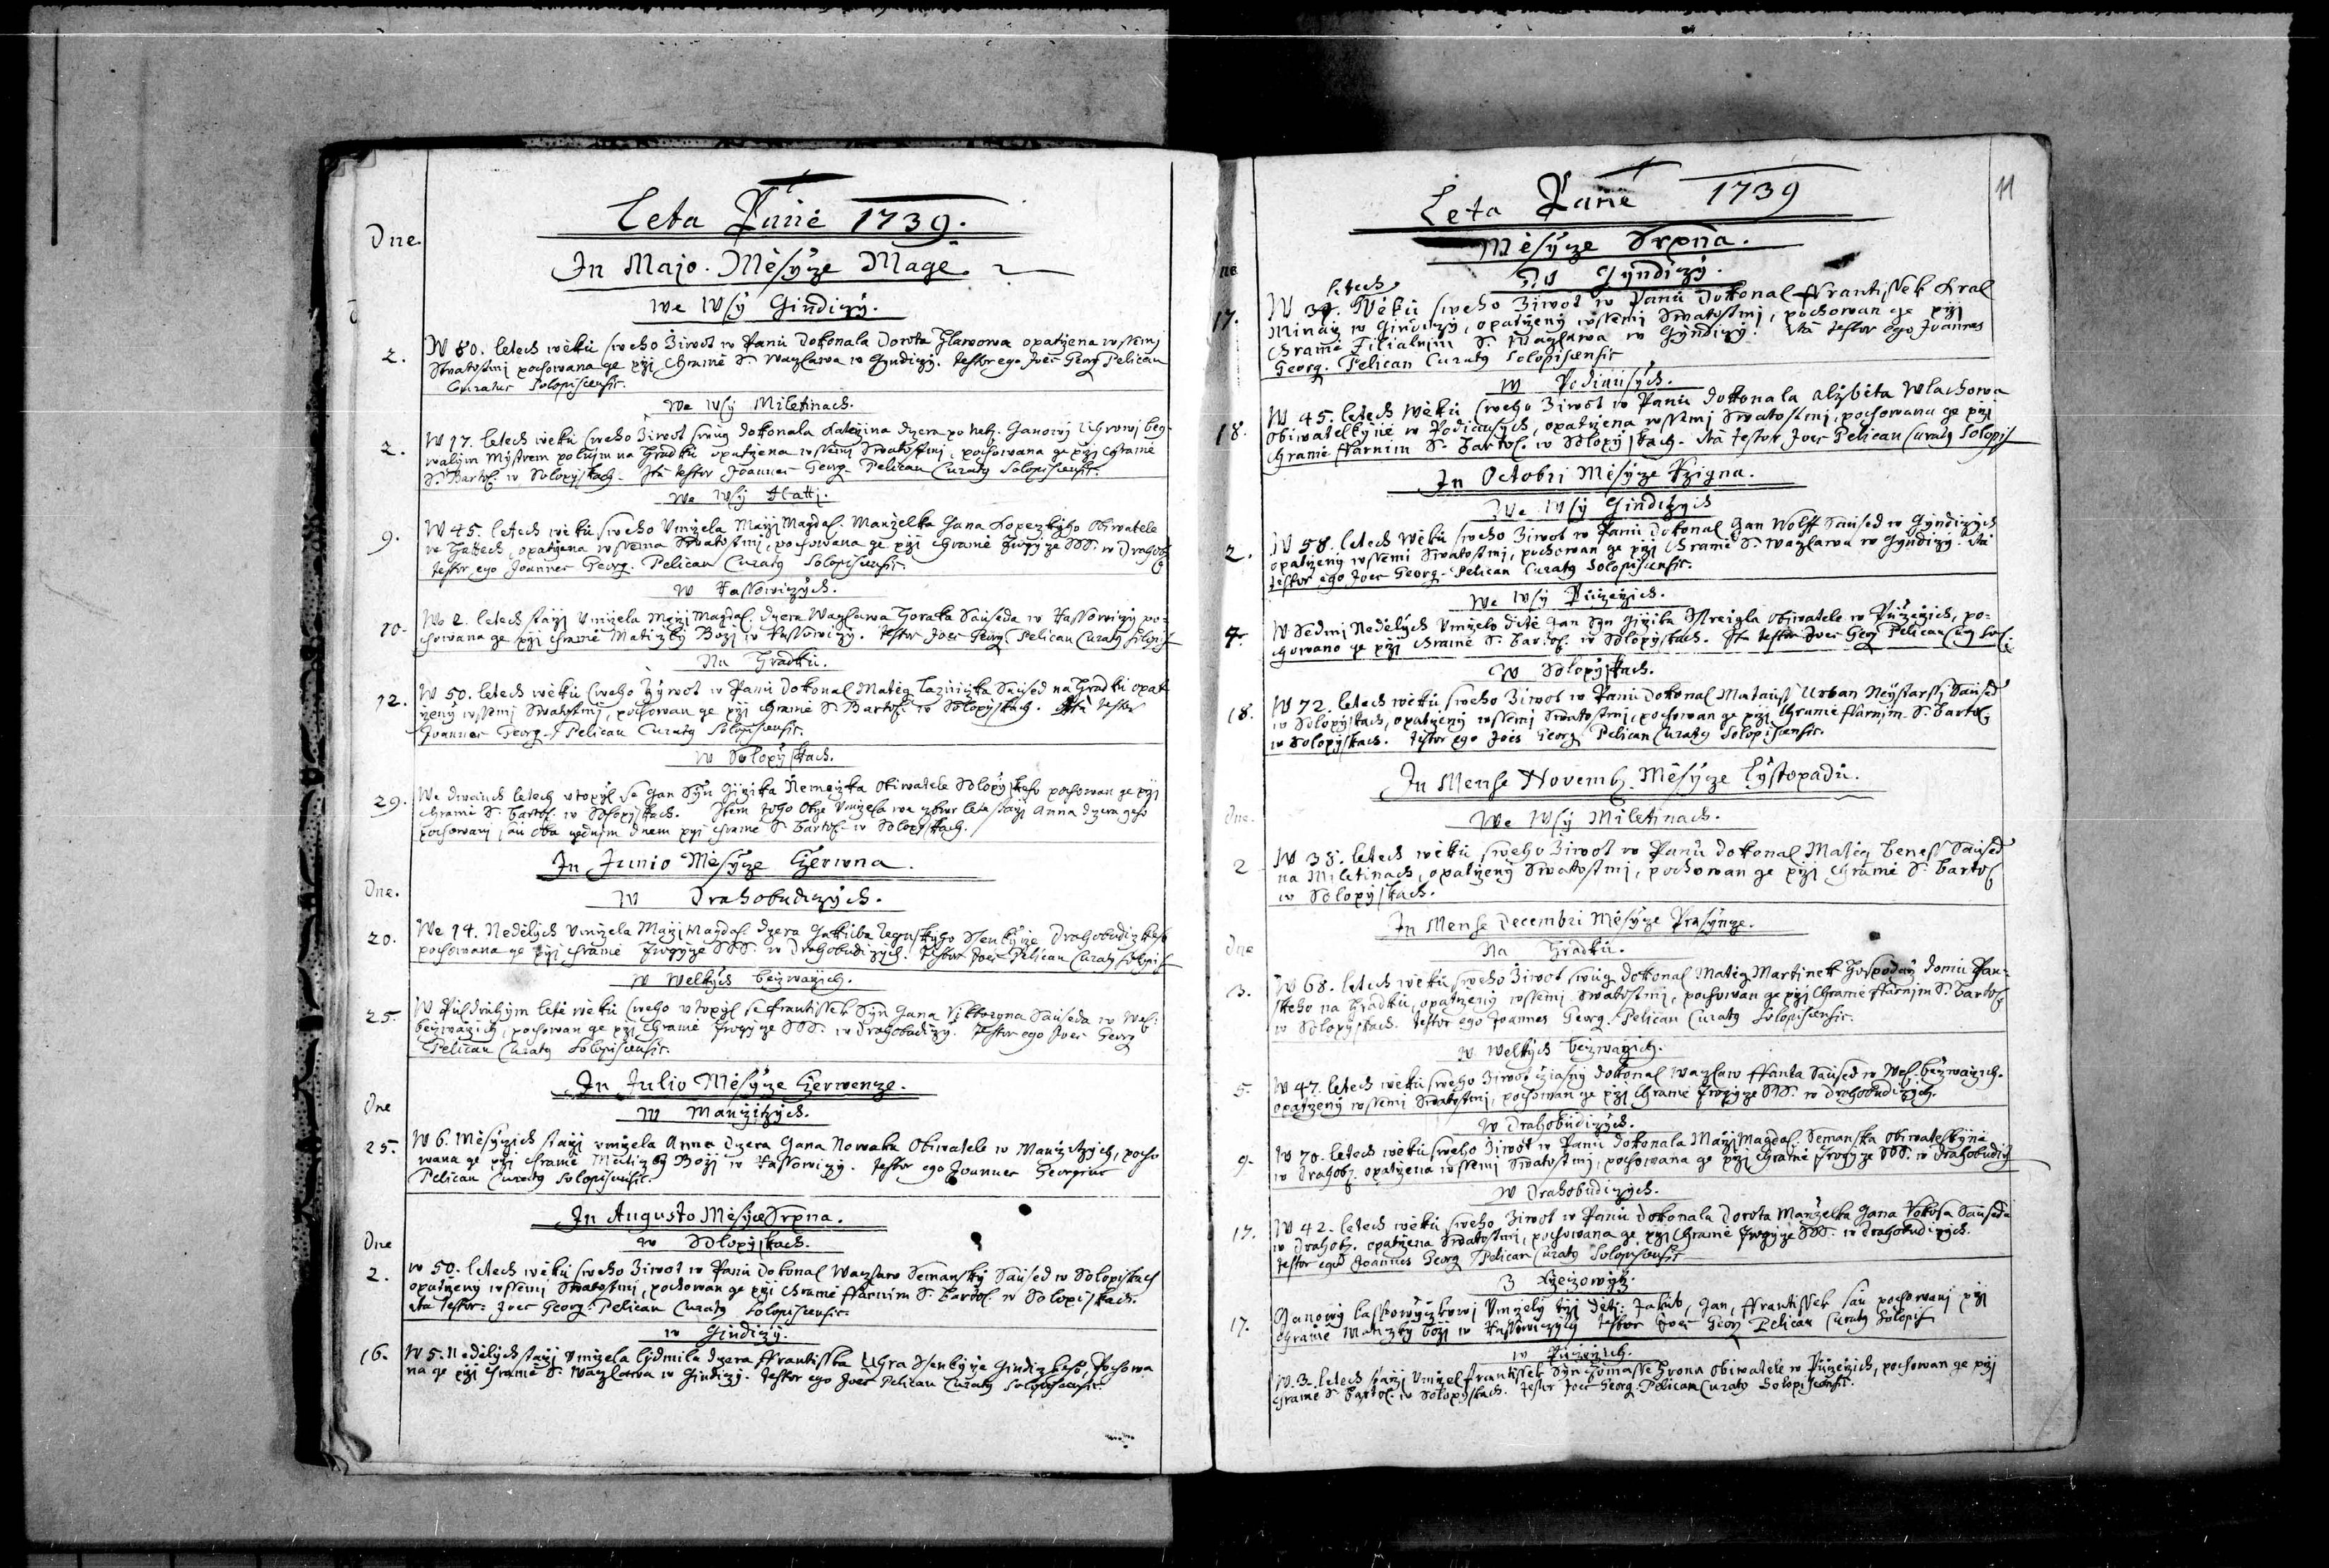 Leta Panie 1739.
Dne.
In Majo. Mėsyze Mage.
we wsy Gindizy.
2. W 80. letech wėku sweho Ziwot w Panu dokonala Dorota Hlawowa opatrzena wssemj
Swatostmj pochowana ge przj Chramė S. Wazlawa w Gyndizy. testor ego Joes Georg Pelican
Curatus Solopiscensis.
We wsy Miletinach.
2. W 17. letech wėku sweho Ziwot swug dokonala Katerzina dzera po neb. Ganowj Uhrowj
walým Mystrem polnjm na Hradku opatrzena wssemj Swatostmj, pochowana ge przj Chramė
S. Bartol. w Solopyskach. Ita testor Joannes Georg Pelican Curatg Solopiscensis.
We wsy Hatti.
9. W 45. letech wėku sweho Umrzela Marzj Magdal. Manzelka Gana Obiwatele
we Hattech, opatrzena wssema Swatostmj, pochowana ge przj Chramė Trogyze SSS. w Drahob.
testor ego Joannes Georg. Pelican Curatg Solopiscensis.
W Kassowizých.
10. We 2. letech starzj Umrzela Marzj Magdal. dzera Wazlawa Horaka Sauseda w Kassowizy po=
chowana ge przj Chramė Matizky Bozj w Kassowizy. Testor Joes Georg. Pelican Curatg Solopis
Na Hradku.
12. W 50. letech wėku sweho Zywot w Panu dokonal Matėg Saused na Hradku opat
rzený wssemj Swatostmj, pochowan ge przj Chramė S. Bartol. w Solopyskach. Ita testor
Joannes Georg. Pelican Curatg Solopiscensis.
W Solopyskach.
29. We dwauch letech utopyl se Gan Syn Girzika Nemeczka Obiwatele Solopyskeho pochowan ge przj
Chramė S. Bartol. w Solopyskach. Item tyho Otze Umrzela we leta starzj Anna dzera geho
pochowanj sau oba gednjm dnem przj Chramė S. Bartol. w Solopyskach.
In Junio Mėsyze Czerwna.
Dne.
W Drahobudizých.
20. We 14. Nedėlych Umrzela Marzj Magdal. dzera Jakuba Ssenkyrze Drahobudizkeho
pochowana ge przj Chramė Trogyze SSS. w Drahobudizych. Testor Joes Pelican Curatg Solopis
W Welkých Beizwarzich.
25. W Puldruhým letė wėku sweho utopyl se Frantissek Syn Gana Viktoryna Sauseda w Wel:
beizwarzich, pochowan ge przj Chramė Trogyze SSS. w Drahobudizy. Testor ego Joes Georg
Pelican Curatg Solopiscensis.
In Julio Mėsyze Czerwenze.
Dne
W Manzitzých.
25. W 6. Mėsyzich starzj umrzela Anna dzera Gana Nowaka Obiwatele w Manzitzych, pocho
wana ge przj Chramė Matizky Bozj w Kassowizy. Testor ego Joannes Georgius
Pelican Curatg Solopiscensis.
In Augusto Mėsyze Srpna.
Dne
w Solopyskach.
2. w 50. letech wėku sweho Ziwot w Panu dokonal Wazlaw Semanský Saused w Solopiskach
opatrzený wssemj Swatostmj, pochowan ge przj Chramė ffarnim S. Bartol. w Solopiskach.
Ita testor: Joes Georg. Pelican Curatg Solopiscensis.
w Gindizy.
16. W 5. Nedėlych starzj Umrzela Lydmila dzera Frantisska Uhra Ssenkyrze Gindizkeho, Pochowa
na ge przj Chramė S. Wazlawa w Gindizy. Testor ego Joes Pelican Curatg Solopiscensis.
11
Leta Panie 1739
Mėsyze Srpna.
W Gyndizy.
letech
17. W 37. Wėku sweho Ziwot w Panu dokonal Frantissek Kral
Minarz w Gindizy, opatrzeny wssemj Swatostmj, pochowan ge przj
Chramė Filialnim S. Wazlawa w Gyndizy. Ita testor ego Joannes
Georg. Pelican Curatg Solopiscensis
W Podiausych.
18. W 45. letech Wėku sweho Ziwot w Panu dokonala Alzbėta Wlachowa
Obiwatelkynė w Podiausych, opatrzena wssemj Swatostmj, pochowana ge przj
Chramė ffarnim S. Bartol. w Solopyskach. Ita testor Joes Pelican Curatg Solopis
In Octobri Mėsyze Rzigna.
We wsy Gindizych
2. W 58. letech Wėku sweho Ziwot w Panu dokonal Gan Wolff Saused w Gyndizych
opatrzený wssemi Swatostmj, pochowan ge przj Chramė S. Wazlawa w Gyndizy. Ita
testor ego Joes Georg. Pelican Curatg Solopiscensis.
We wsy Purzezich.
4. W Sedmj Nedėlych Umrzelo ditė Gan Syn Girzika Obiwatele w Purzezich, po=
chowano ge przj Chramė S. Bartol. w Solopyskach. Ita testor Joes Georg Pelican Curg Sol.
W Solopyskach.
18. W 72. letech wėku sweho Ziwot w Panu dokonal Matauss Urban Neystarssj Saused
w Solopyskach, opatrzený wssemj Swatostmj, pochowan ge przj Chramė ffarnjm S. Bartol.
w Solopyskach. testor ego Joes Georg Pelican Curatg Solopiscensis.
In Mense Novemb. Mėsyze Lystopadu.
Dne.
We Wsy Miletinach.
2 W 38. letech wėku sweho Ziwot w Panu dokonal Matėg Beness Saused
na Miletinach, opatrzený Swatostmj, pochowan ge przj Chramė S. Bartol
w Solopyskach.
In Mense Decembri Mėsyze Prasynze.
Dne
Na Hradku.
3. W 68. letech wėku sweho Ziwot swug dokonal Matėg Martinek Hospodarz domu Pan=
skeho na Hradku, opatrzený wssemj Swatostmj, pochowan ge przj Chramė ffarnjm S. Bartol
w Solopyskach. testor ego Joannes Georg. Pelican Curatg Solopiscensis.
W Welkých Beizwarzich.
5. W 47. letech wėku sweho Ziwot dokonal Wazlaw ffanta Saused w Wel. beizwarzich.
opatrzený wssemi Swatostmj, pochowan ge przj Chramė Trogyze SSS. w Drahobudizych.
W Drahobudizých.
9. W 70. letech wėku sweho Ziwot w Panu dokonala Marzj Magdal. Semanska Obiwatelkynė
w Drahob. opatrzena wssemj Swatostmj, pochowana ge przj Chramė Trogyze SSS. w Drahobudich
W Drahobudizých.
17. W 42. letech wėku sweho Ziwot w Panu dokonala Dorota Manzelka Gana Sauseda
w Drahob. opatrzena Swatostmi, pochowana ge przj Chramė Trogyze SSS. w Drahobudizych.
testor ego Joannes Georg Pelican Curatg Solopiscensis
17. Ganowj Umrzely trzj dėtj: Jakub, Gan, Frantissek sau pochowanj przj
Chramė Matizky Bozj w Kassowizych testor Joes Georg Pelican Curatg Solopis
w Purzezich.
W 3. letech starzj Umrzel Frantissek Syn Tomasse Hrona Obiwatele w Purzezich, pochowan ge przj
Chramė S. Bartol. w Solopyskach. Testor Joes Georg. Pelican Curatg Solopiscensis.